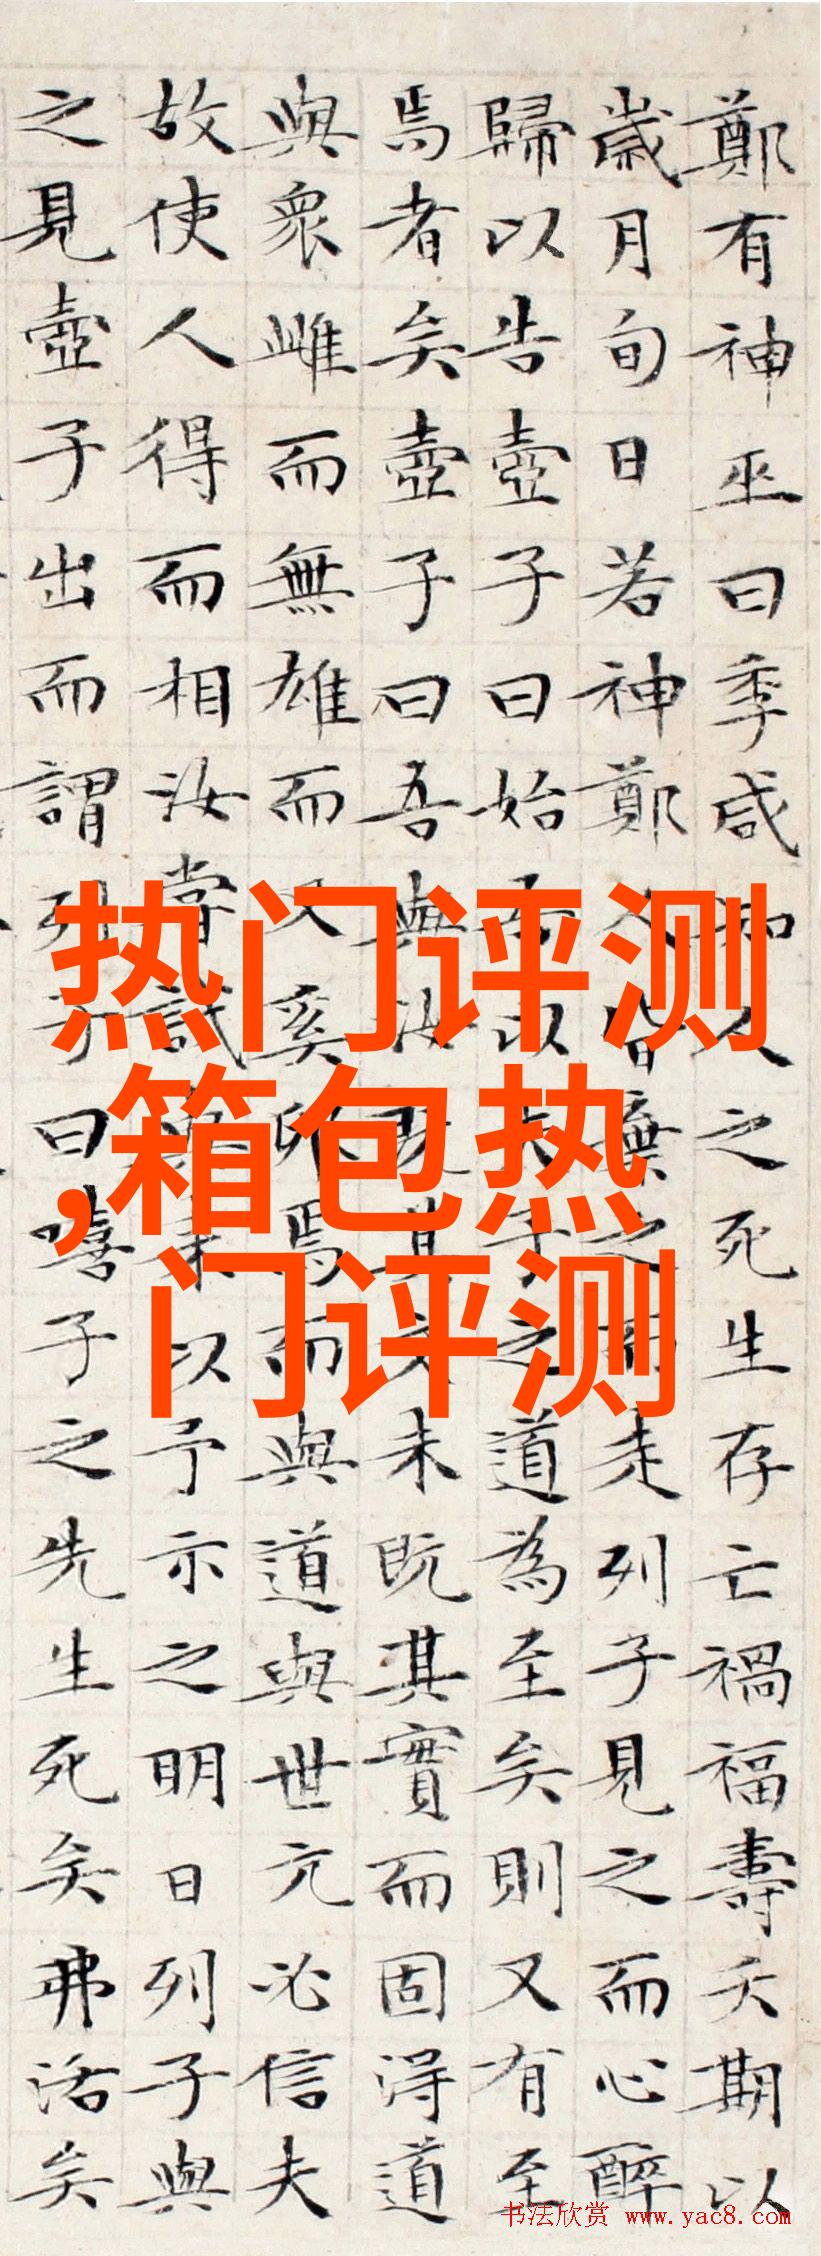 鄭有神巫曰季咸知人之死生存亡禍福壽夭期以
歲月旬日若神鄭人皆棄之而走列子見之而心醉
歸以告壺子曰始吾以夫子之道為至矣則又有至
焉者矣壺子曰吾與汝既其文未既其實而固得道
與衆雌而無雄而又奚卵焉而與道與世亢必信夫
故使人得而相汝嘗試與來以予示之明日列子與
之見壺子出而謂列子曰嘻子之先生死矣弗活矣
热门评测
,箱包热
门评测
书法欣赏 www.yac8.com